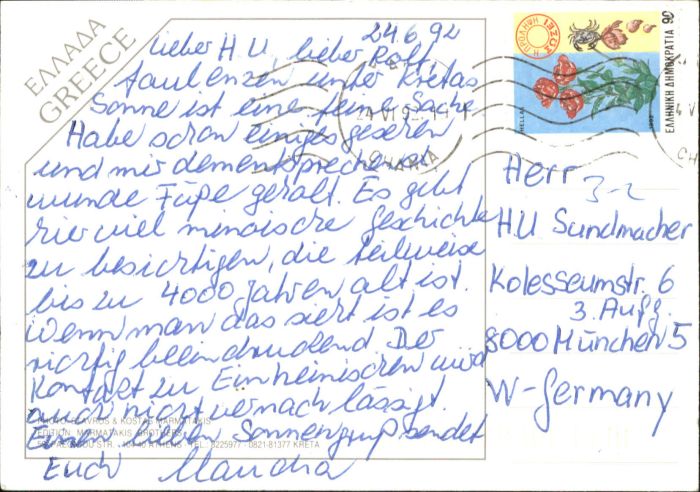 ΕΛΛΑΔΑ
GREECE
24.6.92
lieber H.U, lieber Rolf,
faulenzen unter Kretas
Sonne ist eine feine Sache
Habe schon einiges gesehen
und mir dementsprechend
wunde Füße geholt. Es gibt
hier viel minoische Geschichte
zu besichtigen, die teilweise
bis zu 4000 Jahren alt ist.
Wenn man das sieht ist es
richtig beeindruckend. Der
Kontakt zu Einheimischen wird
auch nicht vernachlässigt.
Einen lieben Sonnengruß sendet
Euch
PHOTO: STAVROS & KOSTAS MARMATAKIS
EDITION: MARMATAKIS BROTHERS
STR. 104 40 ATHENS TEL. 8225977 - 0821-81377 KRETA
ΕΛΛΗΝΙΚΗ ΔΗΜΟΚΡΑΤΙΑ 90
HELLAS
1992
Η ΠΡΟΛΗΨΗ ΣΩΖΕΙ
Herr 3-2
H.U Sundmacher
Kolosseumstr. 6
3. Aufg.
8000 München 5
W-Germany